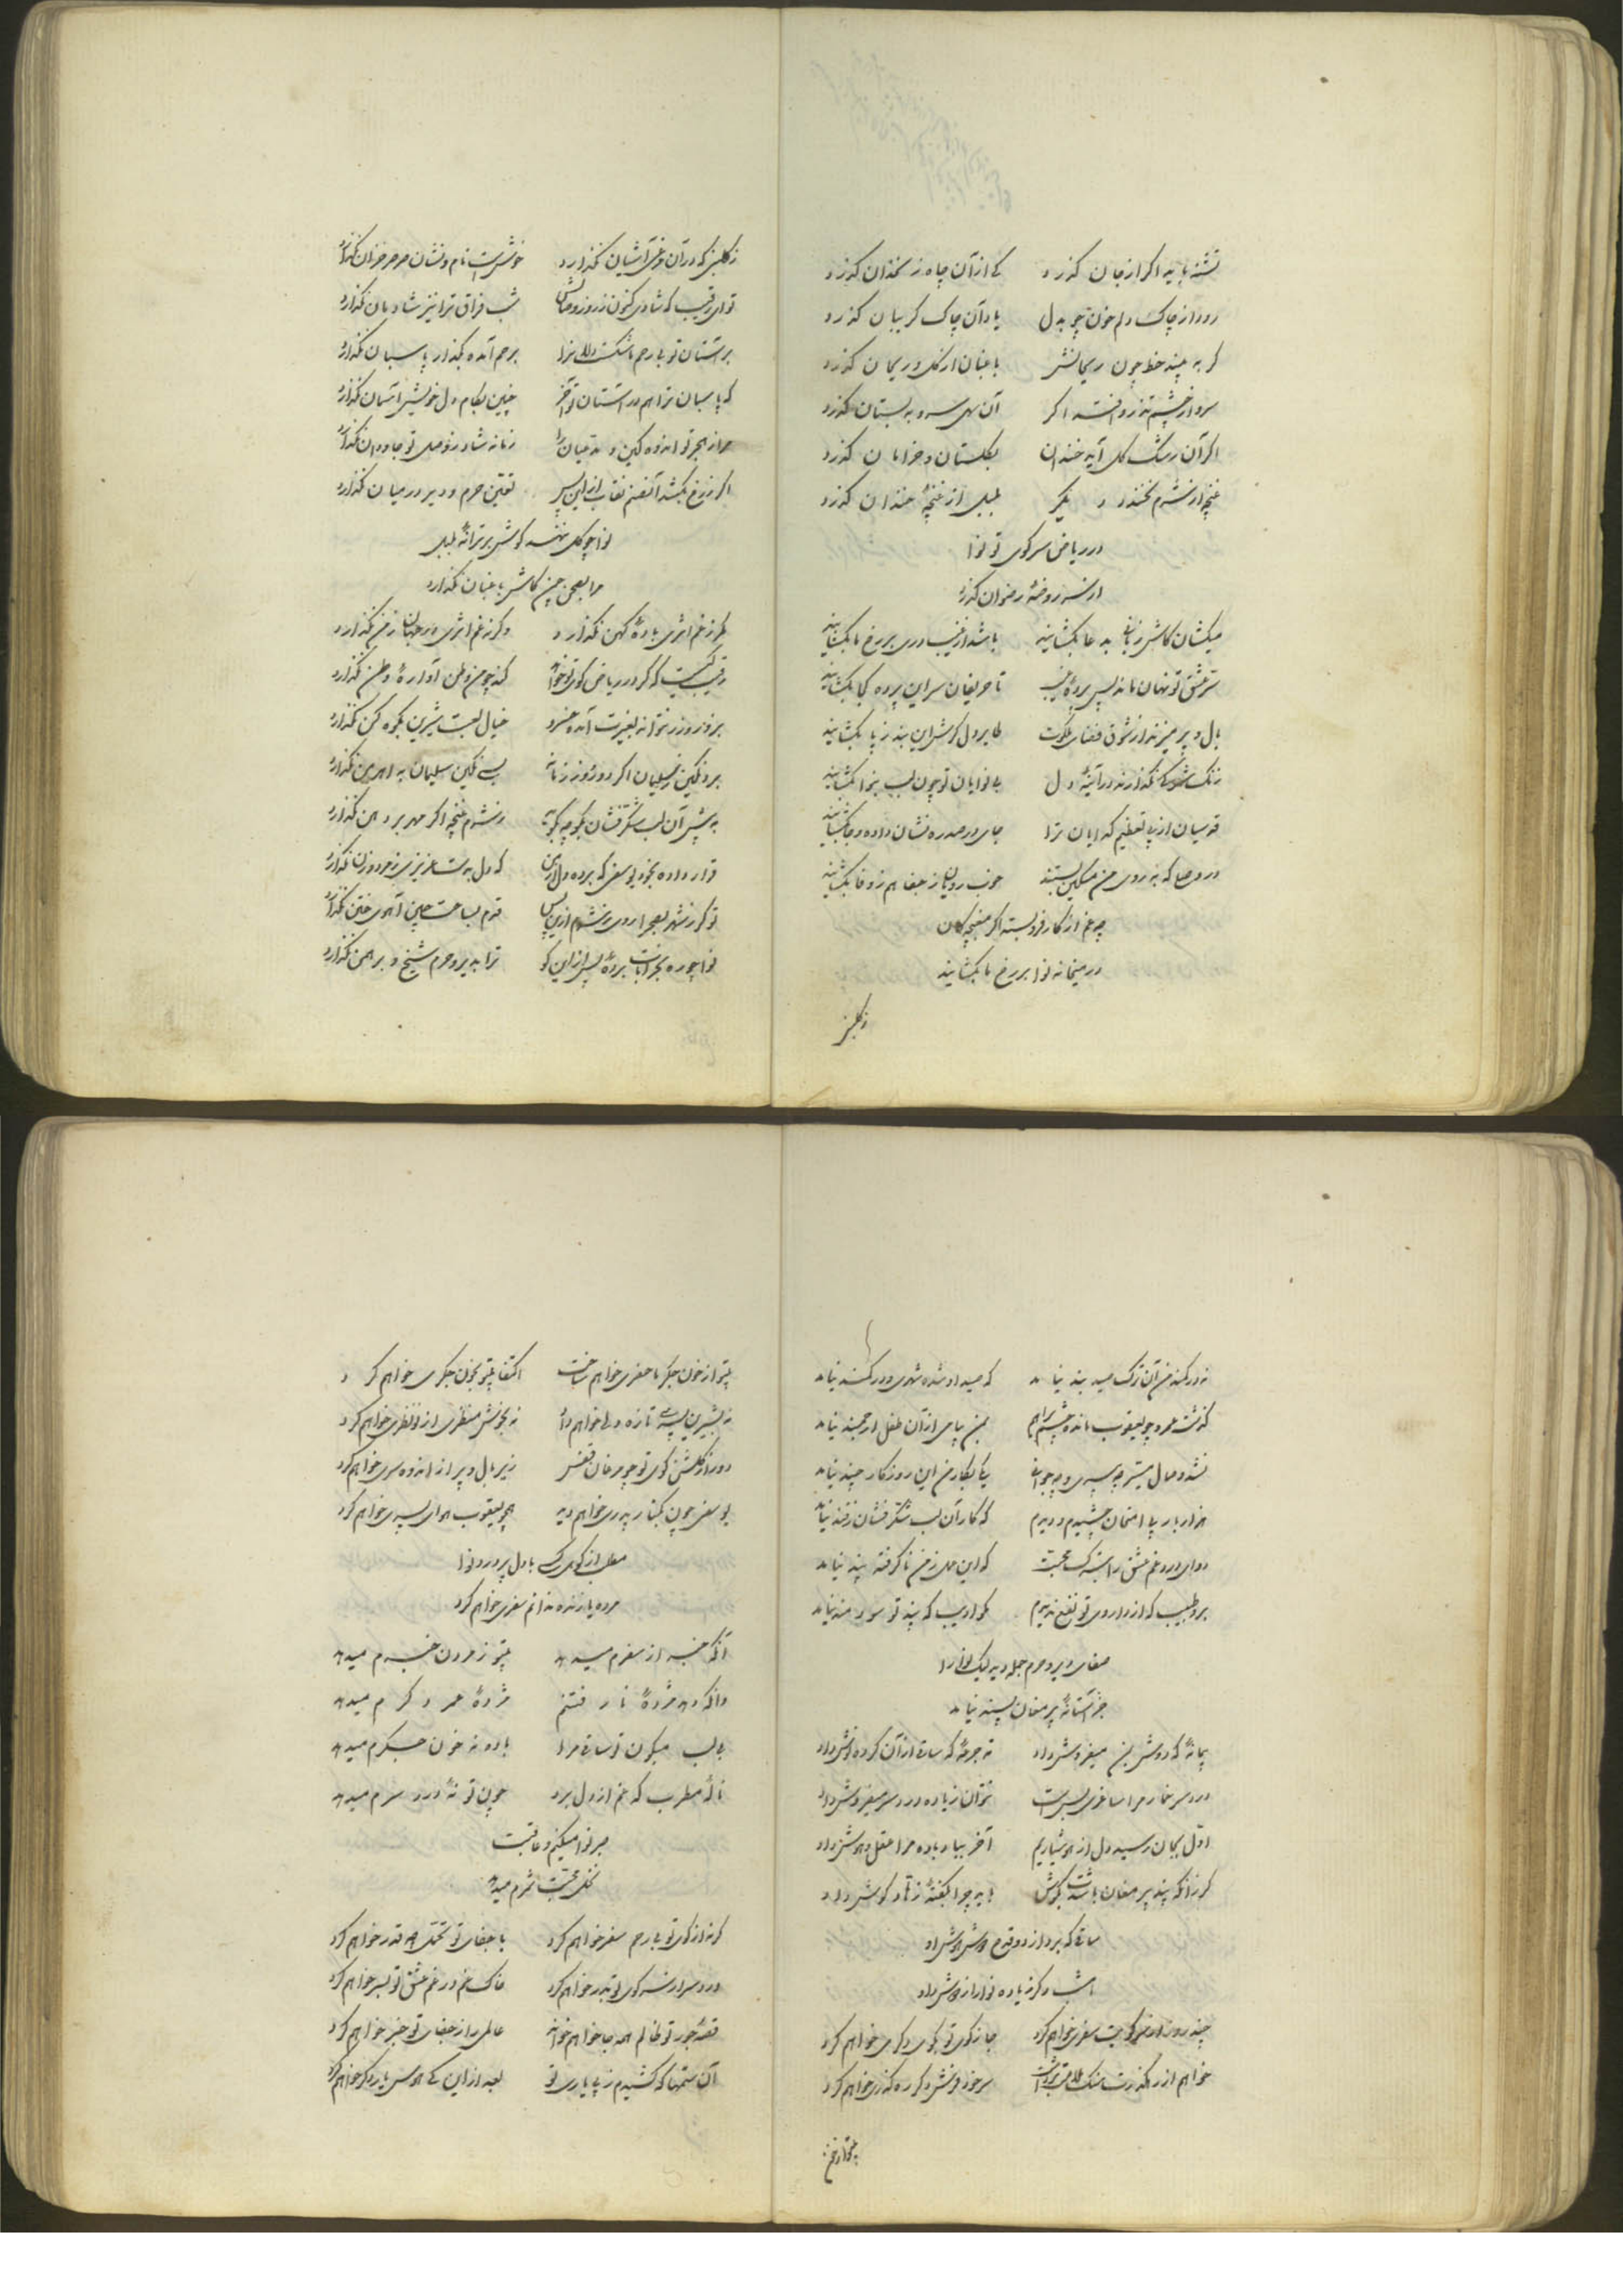 تشنه باید اگر از جان گذرد کی از آن چاه زنخدان گذرد
رود از چاک دلم خون چو بدل یاد آن چاک گریبان گذرد
گر به بیند خط چون ریحانش باغبان از گل و ریحان گذرد
سرو از چشم تذرو افتد اگر آن سهی سرو به بستان گذرد
اگر آن رشک گل آید خندان بگلستان و خرامان گذرد
غنچه از شرم نخندد دیگر بلبل از غنچهٔ خندان گذرد
در ریاض سر کوی تو نوا
از سر روضهٔ رضوان گذرد
میکشان کاش زبانی به دعا بگشایند باشد از غیب دری بر رخ ما بگشایند
سر عشق تو نهان ماند پس پردهٔ غیب تا حریفان سر این پرده کجا بگشایند
بال و پر میزند از شوق فضای ملکوت طایر دل گرش این بند ز پا بگشایند
زنگ نگذارند در آینهٔ دل بی نوایان تو چون لب بنوا بگشایند
قدسیان از پی تعظیم گدایان ترا جای در صدر نشان داده و جا بگشایند
در وصل که به روی من مسکین بستند خوب رویان ز جفا هم ز وفا بگشایند
چه غم از کار فرو بسته اگر مغبچه‌گان
در میخانه نوا بر رخ ما بگشایند
ز گلبن
ز گلبنی که در آن مرغی آشیان نگذارد خوش است نام و نشان صرصر خزان نگذارد
تو ای رقیب که شادی کنون ز روز وصالش شب فراق ترا نیز شادمان نگذارد
بر آستان تو بی رحم ناشکسته دلان را برحم آمده بگذار پاسبان نگذارد
که پاسبان ترا هم در آستان تو آخر چنین بکام دل خویش آسمان نگذارد
مرا ز هجر تو اندوهگین و مدعیان را زمانه شاد ز وصل تو جاودان نگذارد
اگر ز رخ بکشد آن صنم نقاب ازین پس تعین حرم و دیر در میان نگذارد
نوا چو گل ننهد گوش بر ترانهٔ بلبل
مرا بصحن چمن کاش باغبان نگذارد
مگر ز غم اثری بادهٔ کهن نگذارد وگر نه غم اثری در جهان ز من نگذارد
رقیب کیست که گر در ریاض کوی تو خواهد کند چو من وطن آوارهٔ وطن نگذارد
بروز و زر نتواند بغیرت آمده خسرو خیال لعبت شیرین بکوهکن نگذارد
برد نگین ز سلیمان اگر دو روز زمانه بسی نگین سلیمان به اهرمن نگذارد
به پیش آن لب شکرفشان بگو چه بگوید ز شرم غنچه اگر مهر بر دهن نگذارد
قرار داده بخود یوسفی که برده دل از من که دل بدست عزیزی ز مرد و زن نگذارد
تو گر ز شهر بصحرا روی ز شرم ازین پس قدم بساحت چین آهوی ختن نگذارد
نوا چو ره بخرابات بردهٔ پس ازین گو ترا بدیر و حرم شیخ و برهمن نگذارد
نه در کمند من آن ترک صید بند نیامد که صید او شده شهری و در کمند نیامد
گذشت عمر و چو یعقوب مانده چشم براهم بمن پیامی از آن طفل ارجمند نیامد
نشد وصال میسر چه پیری و چه جوانی یکی بکار من این روزگار چند نیامد
هزار بار پی امتحان چشیدم و دیدم که کار آن لب شکرفشان ز قند نیامد
دوای درد غم عشق را نه کسب محبت که این عمل ز من ناگرفته پند نیامد
برو طبیب که از داروی تو نفع ندیدم مگو ادیب که پند تو سودمند نیامد
صفای دیر و حرم جمله دید لیک نوا را
جز آستانهٔ پیر مغان پسند نیامد
پیمانهٔ که دوش بمن میفروش داد ته جرعهٔ که ساقی از آن کرده نوش داد
درد سر خمار مرا ساغری بس است نتوان زیاده درد سر میفروش داد
اول بجان رسید دل از هوشیاریم آخر بیاد باده مرا عقل و هوش داد
گر زانکه پند پیر مغان باشدت بگوش باید چرا بگفتهٔ زهاد گوش داد
ساقی که برد از دو قدح هوش هوش او
امشب دگر زیاده نوا را ز دوش داد
چند روز از سر کویت سفری خواهم کرد جا ز کوی تو بکوی دگری خواهم کرد
خواهم از رهگذرت سنگ ملامت برداشت سر خود فرش دگر ره گذری خواهم کرد
بیتو از خون
بیتو از خون جگر ما حضری خواهم ساخت اکتفا بیتو بخون جگری خواهم کرد
نه بشیرین پسری تازه دلی خواهم داد نه بخوش منظری از نو نظری خواهم کرد
دور از گلشن کوی تو چو مرغان قفس زیر بال و پر از اندوه سری خواهم کرد
یوسفی چون بکنار پدری خواهم دید همچو یعقوب هوای پسری خواهم کرد
مطلب از کوی کسی با دل پر درد نوا
مرده یا زنده ندانم سفری خواهم کرد
آنکه خبر از سفرم میدهد بیتو ز مردن خبرم میدهد
وانکه دهد مژدهٔ نارفتنم مژدهٔ عمر دگرم میدهد
بی لب میگون تو ساقی مرا باده نه خون جگرم میدهد
نالهٔ مطرب که غم از دل برد چون تو نهٔ درد سرم میدهد
صبر نوا میکنم و عاقبت
نخل محبت ثمرم میدهد
گرنه از کوی تو بی رحم سفر خواهم کرد با جفای تو تحمل چقدر خواهم کرد
درد سر از سر کوی تو بدر خواهم کرد خاک غم در غم عشق تو بسر خواهم کرد
قصهٔ جور تو ظالم همه جا خواهم خواند عالمی را ز جفای تو خبر خواهم کرد
آن ستمها که کشیدم ز پی یاری تو بعد ازین کی هوس یار دگر خواهم کرد